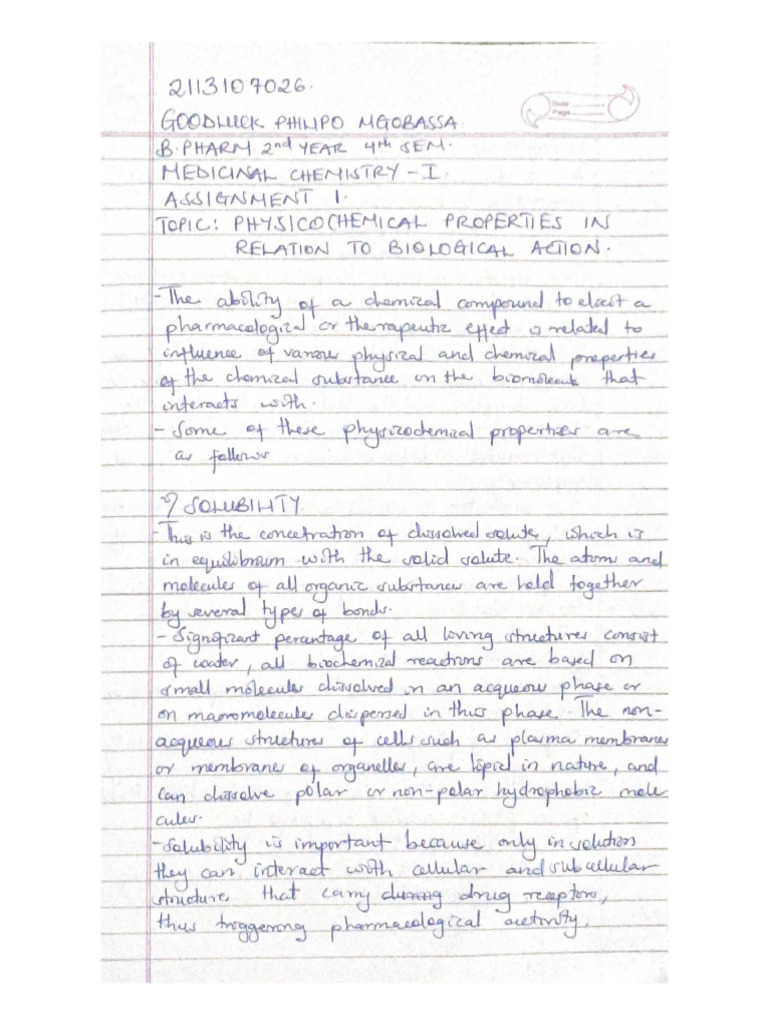 2113107026.
GOODLUCK PHILIPO MGOBASSA
Date
Page
B. PHARM 2nd YEAR 4th SEM.
MEDICINAL CHEMISTRY - I.
ASSIGNMENT 1.
TOPIC: PHYSICOCHEMICAL PROPERTIES IN
RELATION TO BIOLOGICAL ACTION.
- The ability of a chemical compound to elicit a
pharmacological or therapeutic effect is related to
influence of various physical and chemical properties
of the chemical substance on the biomolecule that
interacts with.
- Some of these physicochemical properties are
as follows
i) SOLUBILITY
- This is the concetration of dissolved solute, which is
in equilibrium with the solid solute. The atoms and
molecules of all organic substances are held together
by several types of bonds.
- Significant percantage of all living structures consist
of water, all biochemical reactions are based on
small molecules dissolved in an acqueous phase or
on macromolecules dispersed in this phase. The non-
acqueous structures of cells such as plasma membranes
or membranes of organelles, are lipid in nature, and
can dissolve polar or non-polar hydrophobic mole
cules.
- Solubility is important because only in solutions
they can interact with cellular and subcellular
structures that carry during drug receptors,
thus triggering pharmacological activity.